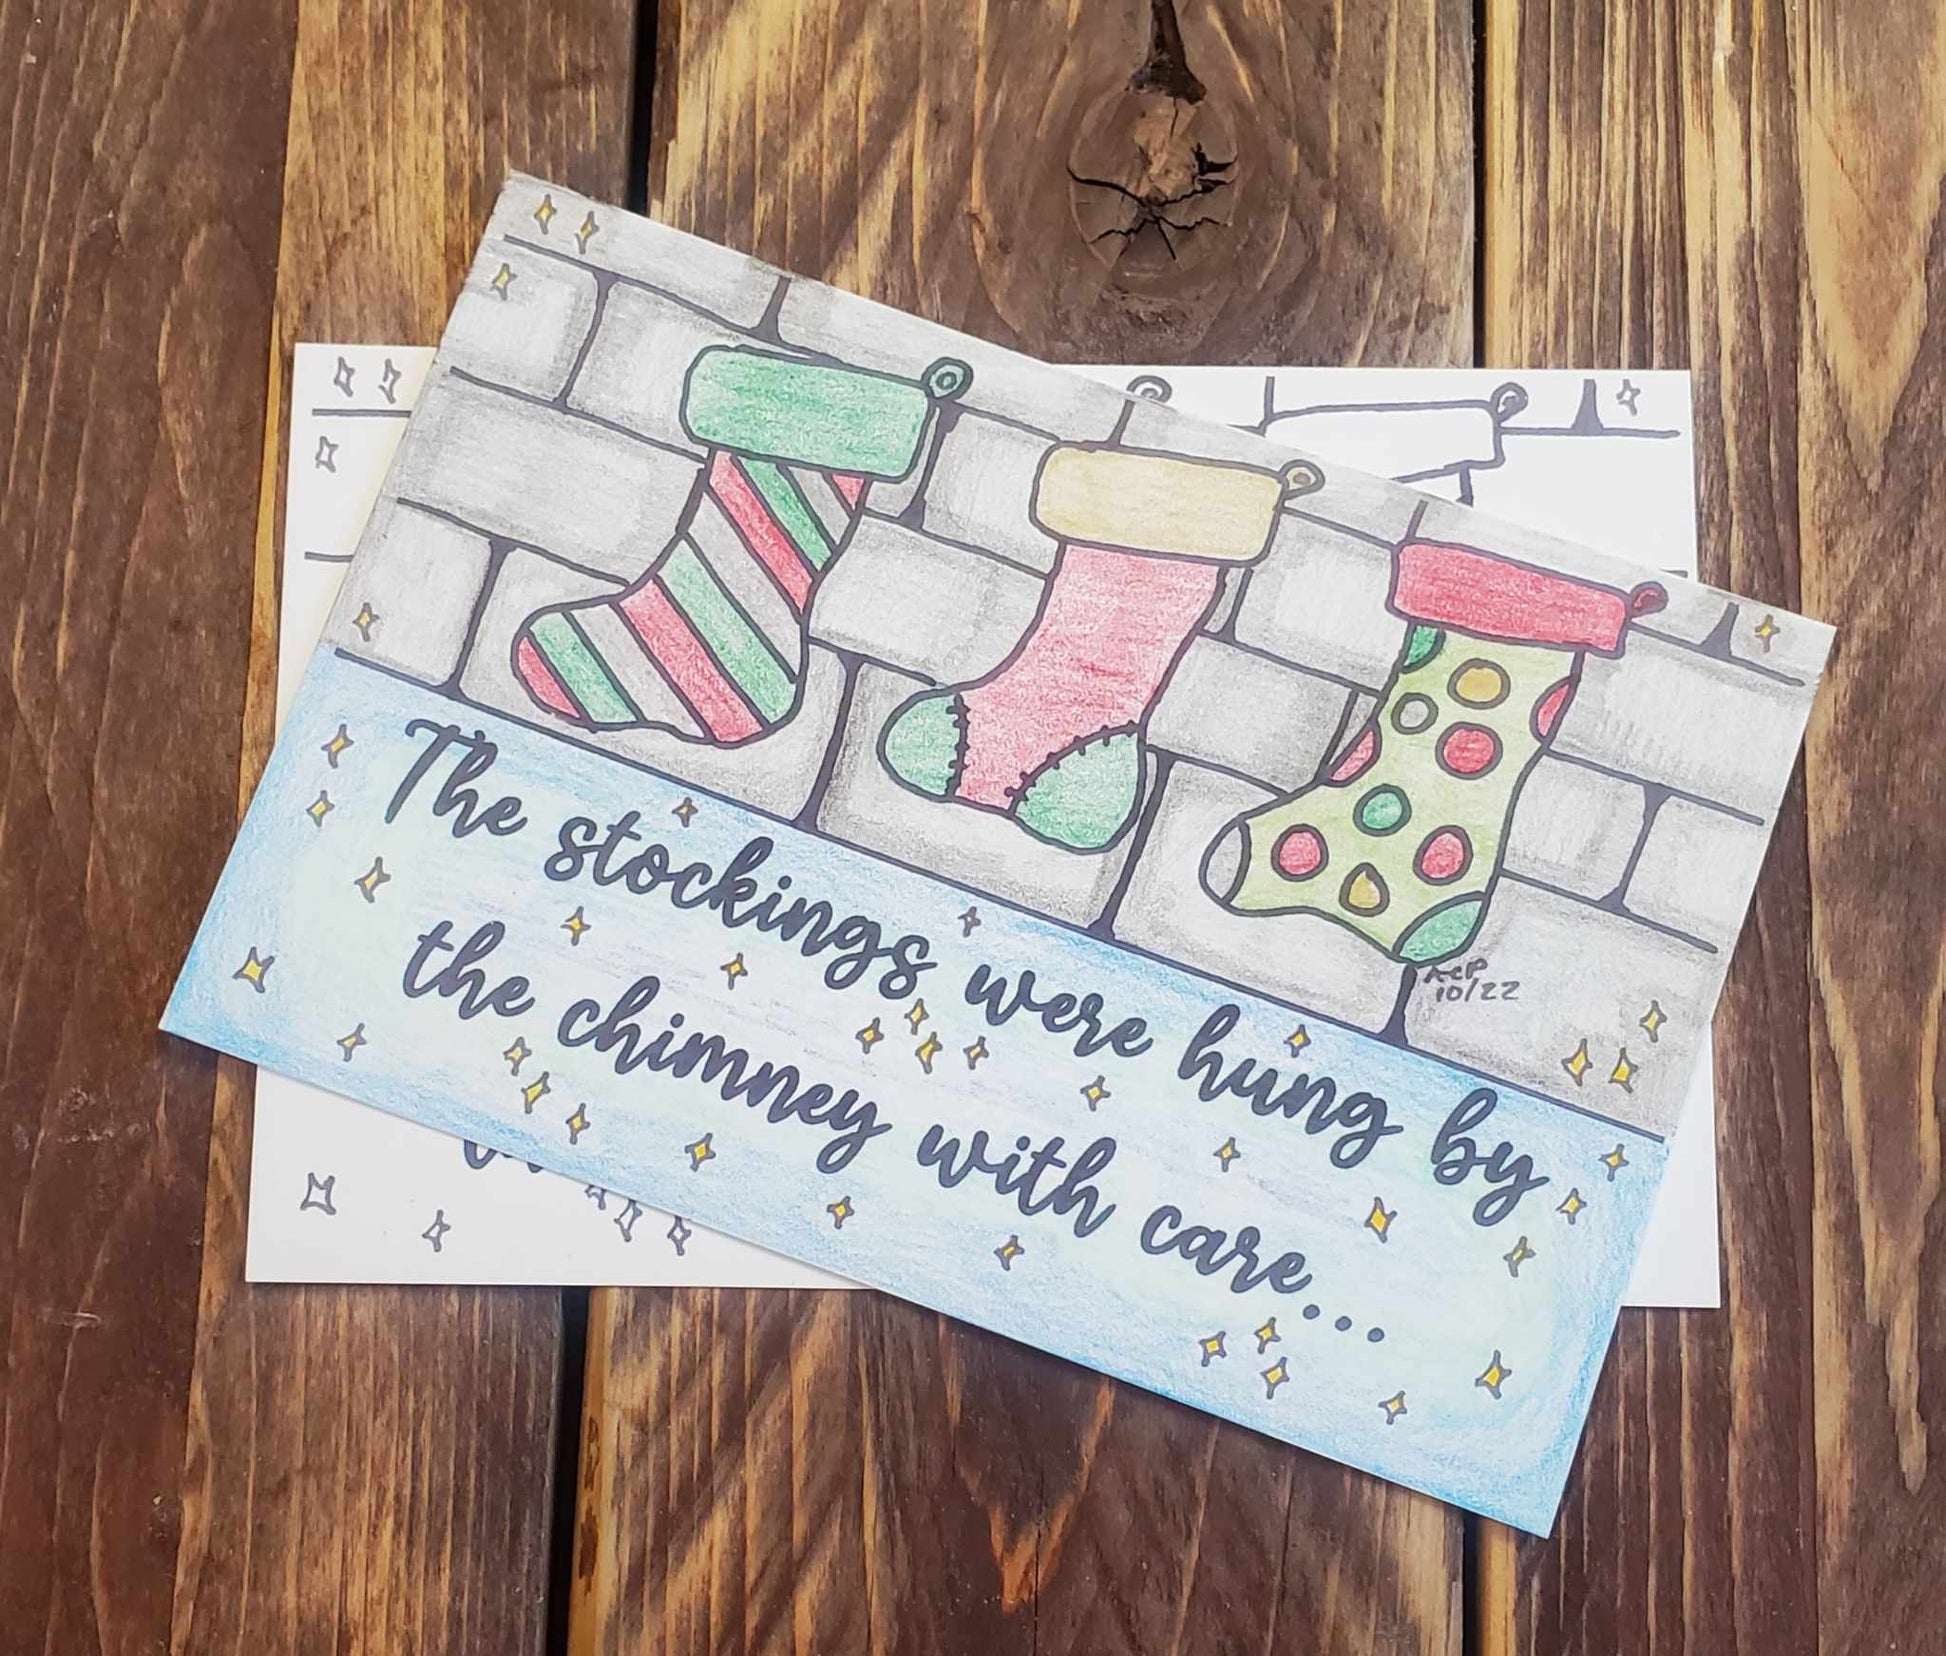 The stockings were hung by
the chimney with care...
10/22